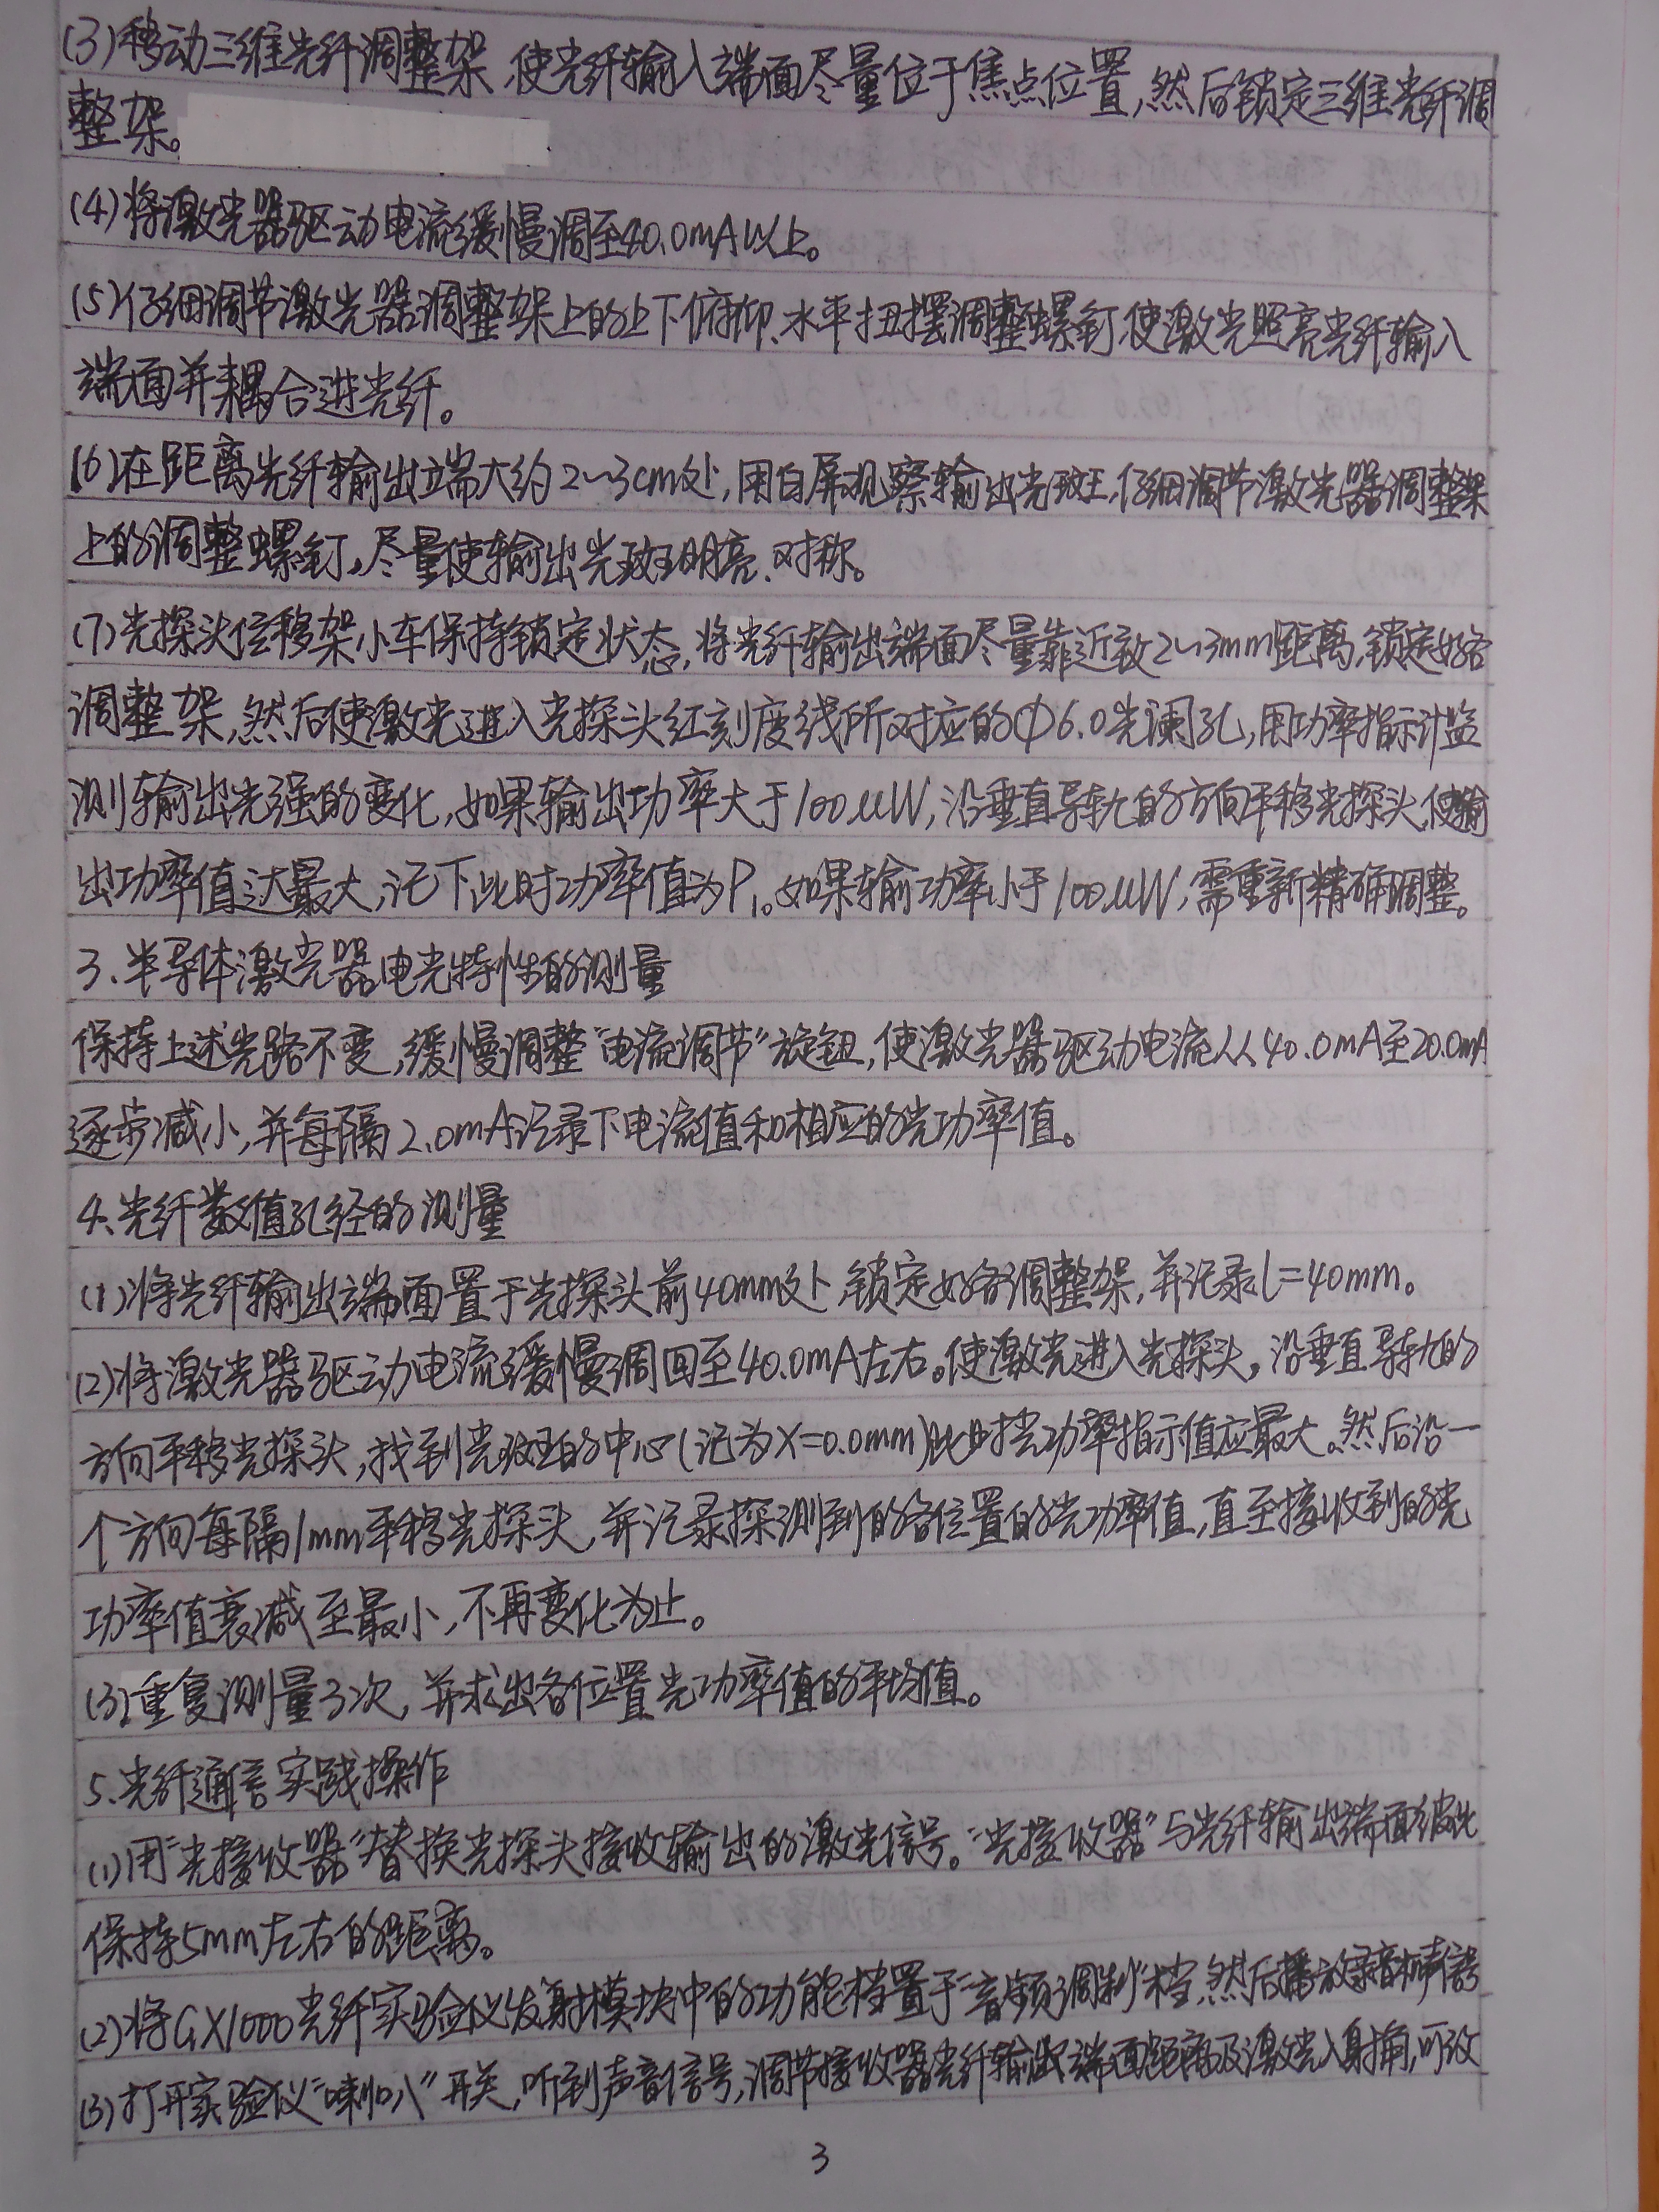 (3)移动三维光纤调整架,使光纤输入端面尽量位于焦点位置,然后锁定三维光纤调
整架。
(4)将激光器驱动电流缓慢调至40.0mA以上。
(5)仔细调节激光器调整架上的上下俯仰、水平扭摆调整螺钉,使激光照亮光纤输入
端面并耦合进光纤。
(6)在距离光纤输出端大约2~3cm处,用白屏观察输出光斑,仔细调节激光器调整架
上的调整螺钉,尽量使输出光斑明亮、对称。
(7)光探头位移架小车保持锁定状态,将光纤输出端面尽量靠近致2~3mm距离,锁定好各
调整架,然后使激光进入光探头红刻度线所对应的Φ6.0光阑孔,用功率指示计监
测输出光强的变化,如果输出功率大于100μW,沿垂直导轨的方向平移光探头,使输
出功率值达最大,记下此时功率值为P₁。如果输功率小于100μW,需重新精确调整。
3.半导体激光器电光特性的测量
保持上述光路不变,缓慢调整“电流调节”旋钮,使激光器驱动电流从40.0mA至20.0mA
逐步减小,并每隔2.0mA记录下电流值和相应的光功率值。
4.光纤数值孔径的测量
(1)将光纤输出端面置于光探头前40mm处,锁定好各调整架,并记录l=40mm。
(2)将激光器驱动电流缓慢调回至40.0mA左右。使激光进入光探头,沿垂直导轨的
方向平移光探头,找到光斑的中心(记为X=0.0mm)此时光功率指示值应最大。然后沿一
个方向每隔1mm平移光探头,并记录探测到的各位置的光功率值,直至接收到的光
功率值衰减至最小,不再变化为止。
(3)重复测量3次,并求出各位置光功率值的平均值。
5.光纤通信实践操作
(1)用“光接收器”替换光探头接收输出的激光信号。“光接收器”与光纤输出端面彼此
保持5mm左右的距离。
(2)将GX1000光纤实验仪发射模块中的功能档置于“音频调制”档,然后播放录音机
(3)打开实验仪“喇叭”开关,听到声音信号,调节接收器光纤输出端面距离及激光入射角,可改
3